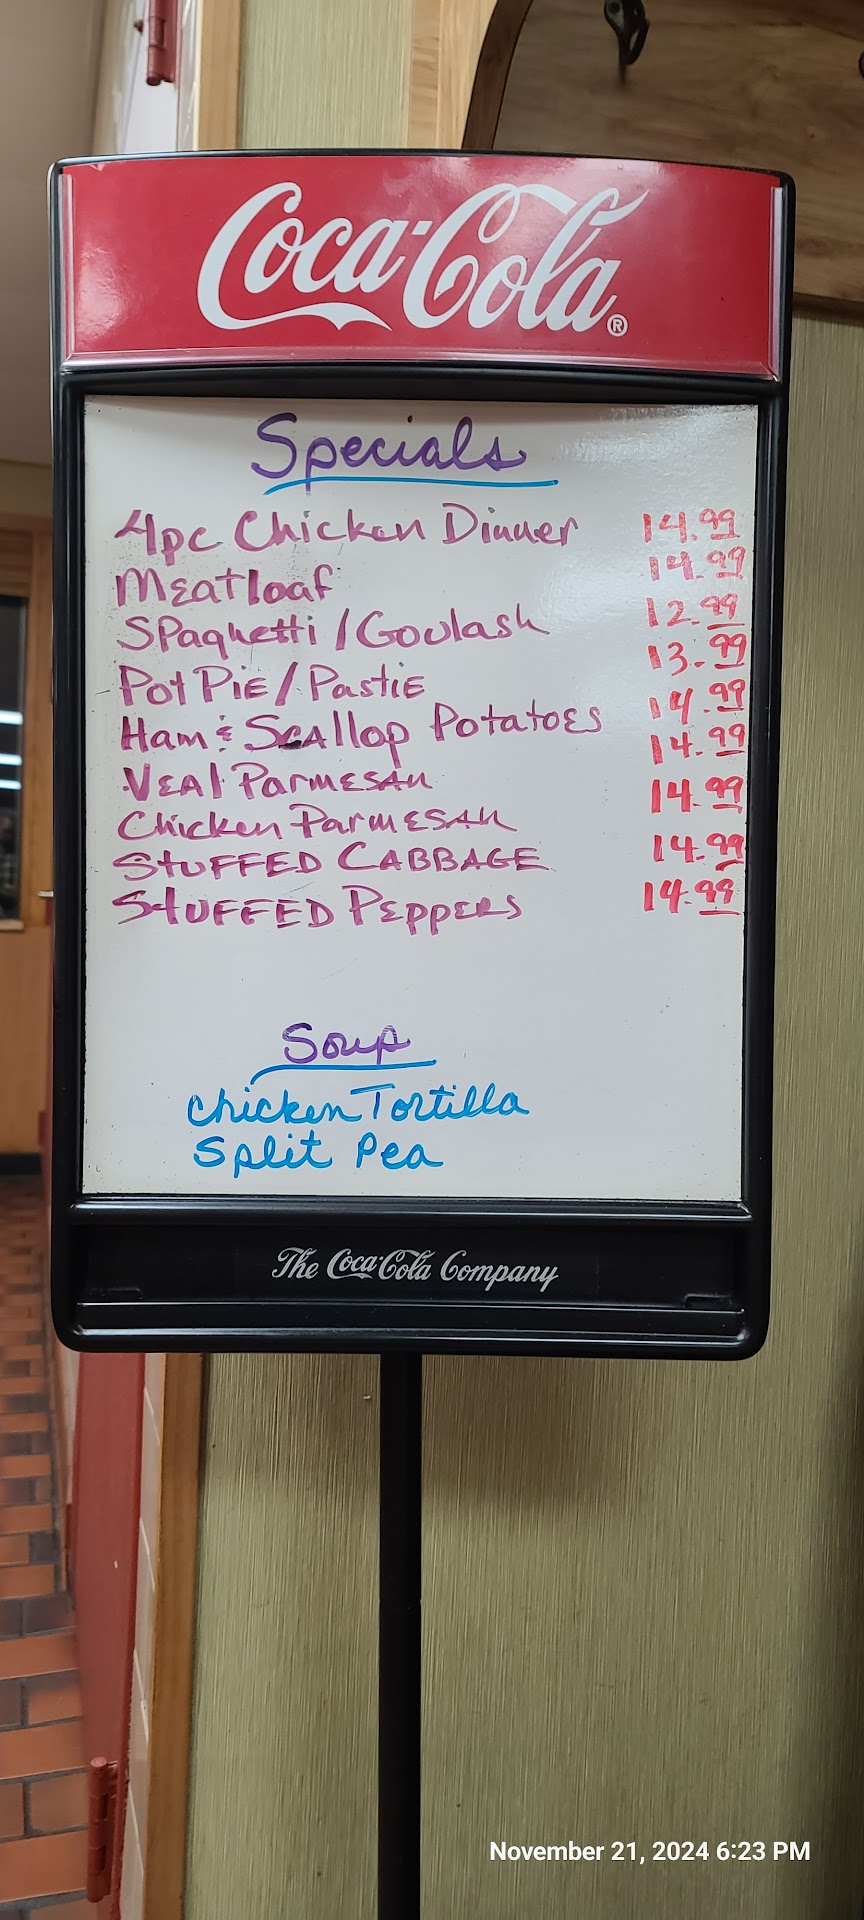 Coca-Cola®
Specials
4pc Chicken Dinner 14.99
Meatloaf 14.99
Spaghetti/Goulash 12.99
Pot Pie/Pastie 13.99
Ham & Scallop Potatoes 14.99
Veal Parmesan 14.99
Chicken Parmesan 14.99
STUFFED CABBAGE 14.99
STUFFED PEPPERS 14.99
Soup
Chicken Tortilla
Split Pea
The Coca-Cola Company
November 21, 2024 6:23 PM